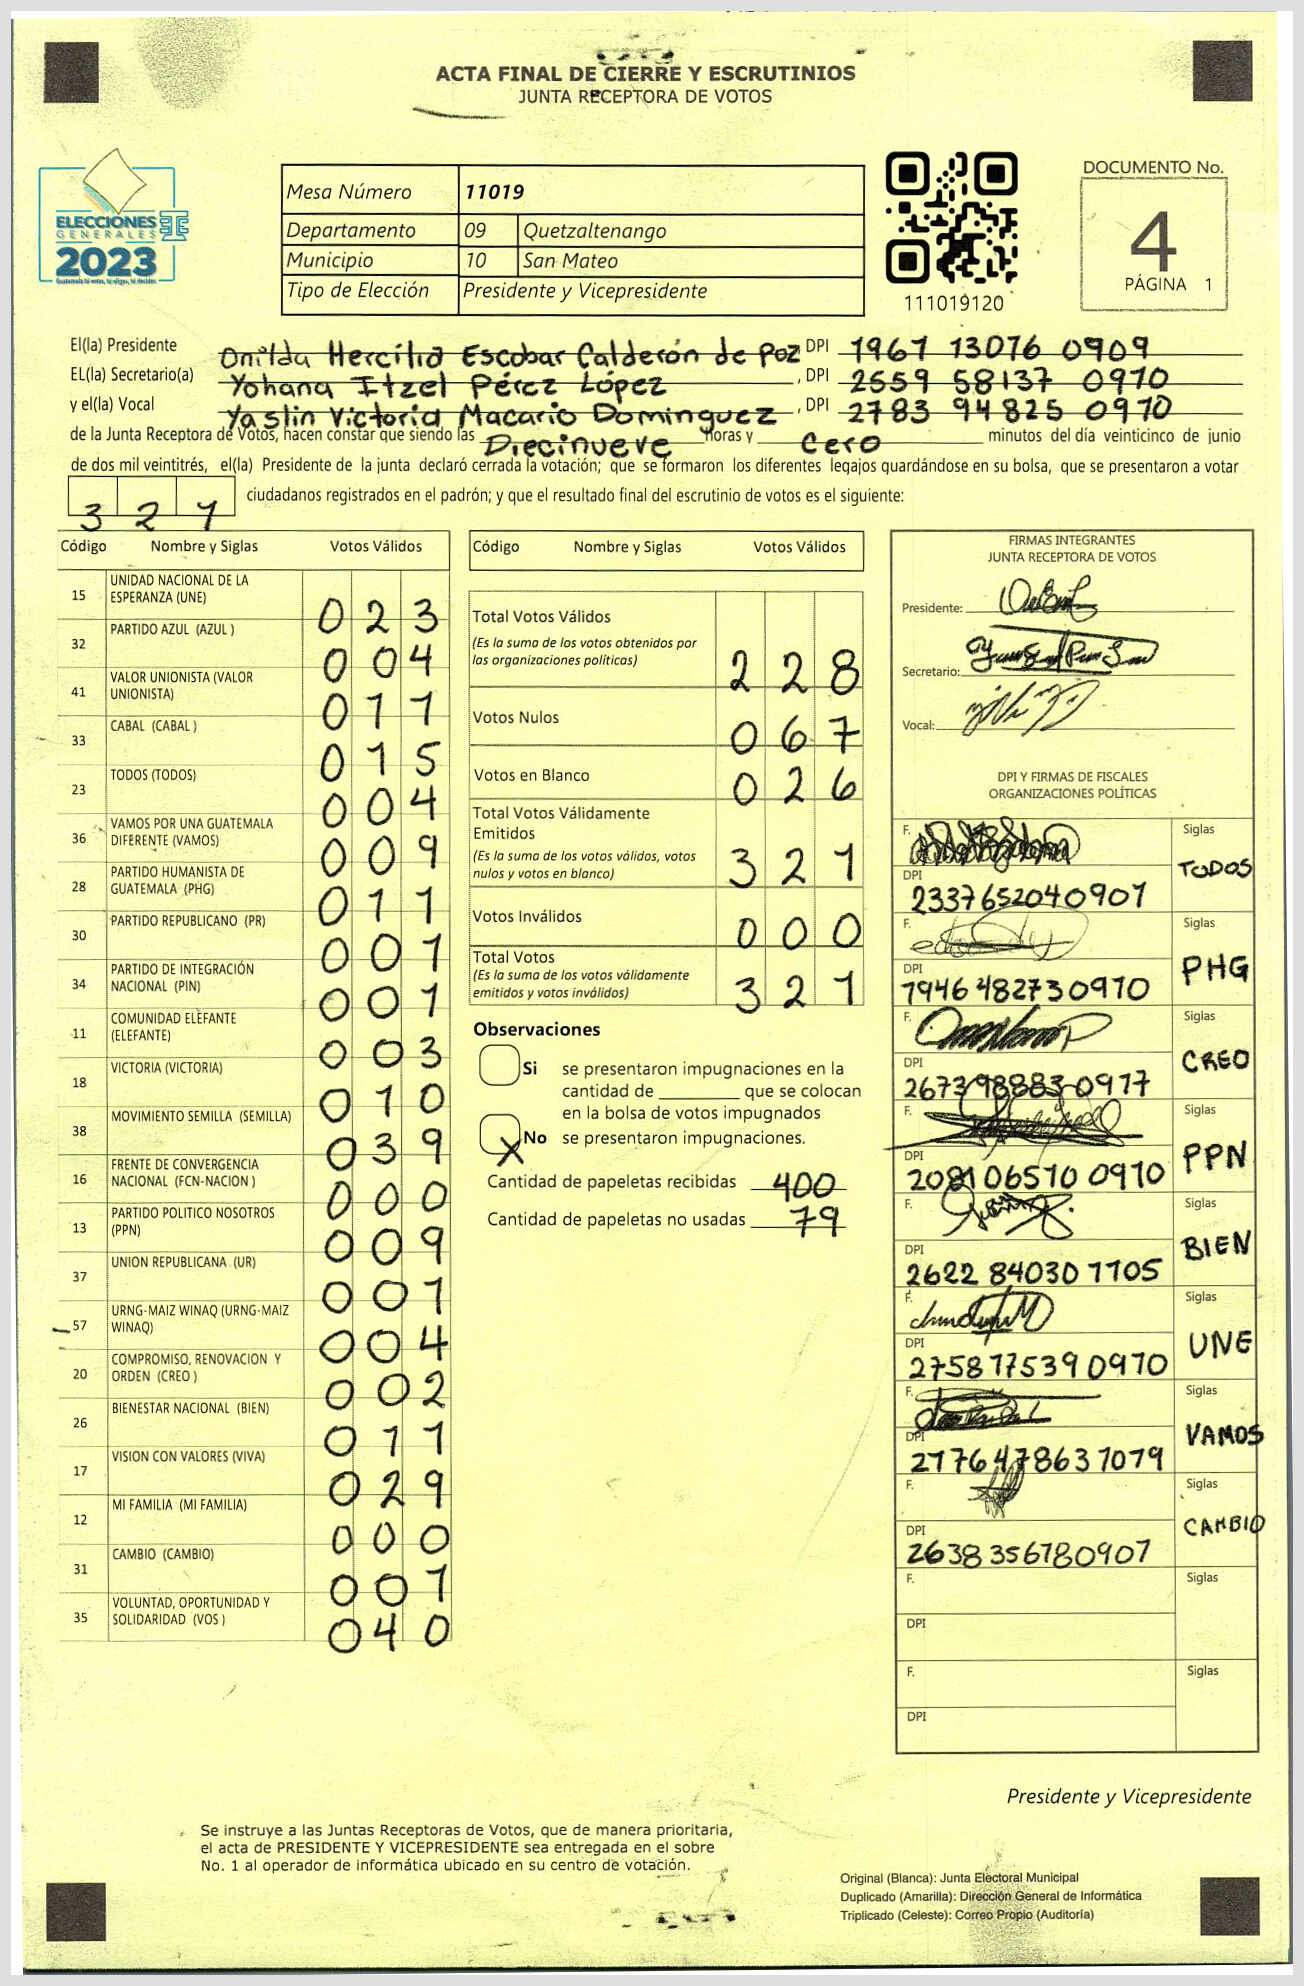 ACTA FINAL DE CIERRE Y ESCRUTINIOS
JUNTA RECEPTORA DE VOTOS
ELECCIONES
GENERALES
2023
Mesa Número 11019
Departamento 09 Quetzaltenango
Municipio 10 San Mateo
Tipo de Elección Presidente y Vicepresidente
111019120
DOCUMENTO No.
4
PÁGINA 1
El(la) Presidente Onilda Hercilia Escobar Calderón de Poz DPI 1967 13076 0909
EL(la) Secretario(a) Yohana Itzel Pérez López , DPI 2559 58137 0970
y el(la) Vocal Yaslin Victoria Macario Dominguez , DPI 2783 94825 0970
de la Junta Receptora de Votos, hacen constar que siendo las Diecinueve horas y cero minutos del día veinticinco de junio
de dos mil veintitrés, el(la) Presidente de la junta declaró cerrada la votación; que se formaron los diferentes legajos quardándose en su bolsa, que se presentaron a votar
321 ciudadanos registrados en el padrón; y que el resultado final del escrutinio de votos es el siguiente:
Código Nombre y Siglas Votos Válidos
15 UNIDAD NACIONAL DE LA ESPERANZA (UNE) 023
32 PARTIDO AZUL (AZUL ) 004
41 VALOR UNIONISTA (VALOR UNIONISTA) 011
33 CABAL (CABAL ) 015
23 TODOS (TODOS) 004
36 VAMOS POR UNA GUATEMALA DIFERENTE (VAMOS) 009
28 PARTIDO HUMANISTA DE GUATEMALA (PHG) 011
30 PARTIDO REPUBLICANO (PR) 001
34 PARTIDO DE INTEGRACIÓN NACIONAL (PIN) 001
11 COMUNIDAD ELEFANTE (ELEFANTE) 003
18 VICTORIA (VICTORIA) 010
38 MOVIMIENTO SEMILLA (SEMILLA) 039
16 FRENTE DE CONVERGENCIA NACIONAL (FCN-NACION ) 000
13 PARTIDO POLITICO NOSOTROS (PPN) 009
37 UNION REPUBLICANA (UR) 001
57 URNG-MAIZ WINAQ (URNG-MAIZ WINAQ) 004
20 COMPROMISO, RENOVACION Y ORDEN (CREO ) 002
26 BIENESTAR NACIONAL (BIEN) 011
17 VISION CON VALORES (VIVA) 029
12 MI FAMILIA (MI FAMILIA) 000
31 CAMBIO (CAMBIO) 001
35 VOLUNTAD, OPORTUNIDAD Y SOLIDARIDAD (VOS ) 040
Código Nombre y Siglas Votos Válidos
Total Votos Válidos
(Es la suma de los votos obtenidos por las organizaciones políticas) 228
Votos Nulos 067
Votos en Blanco 026
Total Votos Válidamente Emitidos
(Es la suma de los votos válidos, votos nulos y votos en blanco) 321
Votos Inválidos 000
Total Votos
(Es la suma de los votos válidamente emitidos y votos inválidos) 321
Observaciones
Si se presentaron impugnaciones en la
cantidad de ________ que se colocan
en la bolsa de votos impugnados
X No se presentaron impugnaciones.
Cantidad de papeletas recibidas 400
Cantidad de papeletas no usadas 79
FIRMAS INTEGRANTES
JUNTA RECEPTORA DE VOTOS
Presidente:
Secretario:
Vocal:
DPI Y FIRMAS DE FISCALES
ORGANIZACIONES POLÍTICAS
F. Siglas TODOS
DPI 2337652040901
F. Siglas PHG
DPI 1946482730970
F. Siglas CREO
DPI 2673988830917
F. Siglas PPN
DPI 2081065700970
F. Siglas BIEN
DPI 2622 84030 1105
F. Siglas UNE
DPI 2758775390970
F. Siglas VAMOS
DPI 2776478631079
F. Siglas CAMBIO
DPI 2638356780907
F. Siglas
DPI
F. Siglas
DPI
Presidente y Vicepresidente
Se instruye a las Juntas Receptoras de Votos, que de manera prioritaria,
el acta de PRESIDENTE Y VICEPRESIDENTE sea entregada en el sobre
No. 1 al operador de informática ubicado en su centro de votación.
Original (Blanca): Junta Electoral Municipal
Duplicado (Amarilla): Dirección General de Informática
Triplicado (Celeste): Correo Propio (Auditoría)